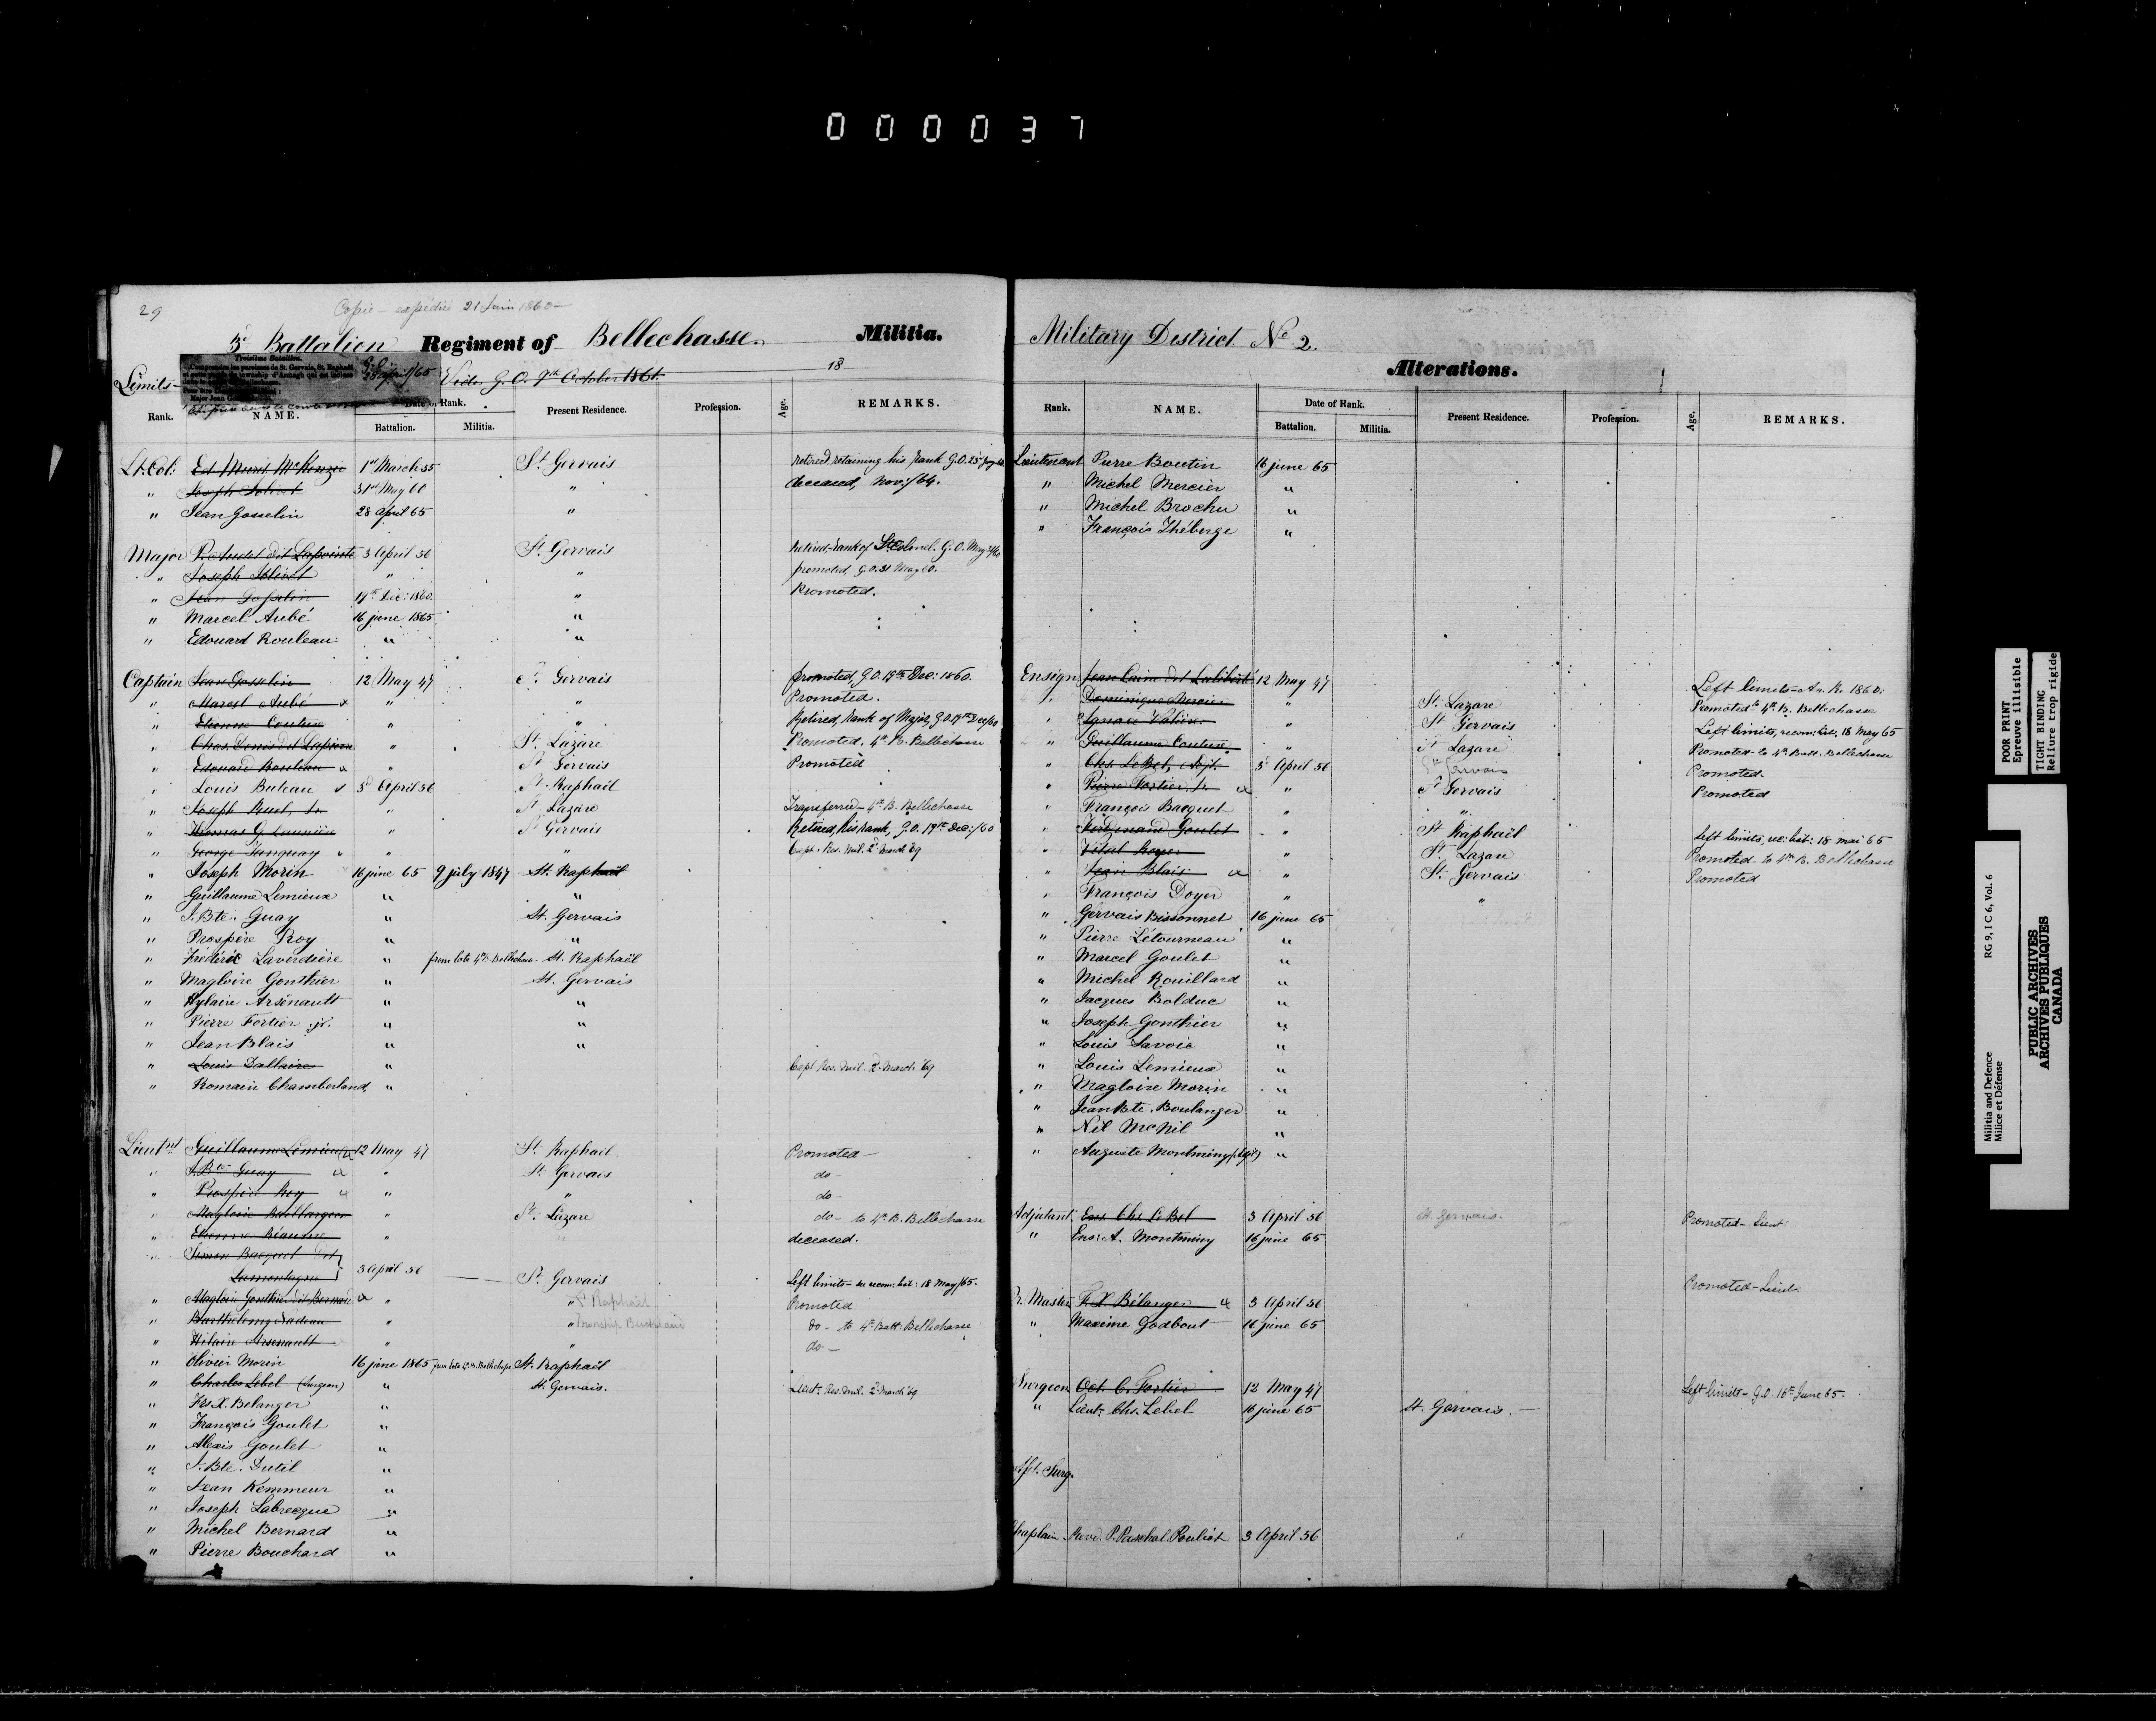 000037
29
Copie - expédiée 21 Juin 1860 -
3d Battalion Regiment of Bellechasse. Militia.
Troisième Bataillon.
G. O. 28 April/65
Limits - Vide G. O. 9th October 1861.
18
Rank. NAME. Date of Rank. Battalion. Militia. Present Residence. Profession. Age. REMARKS.
Lt. Col: Ed. McKenzie 1st March 55 St. Gervais retired retaining his rank G.O. 25
" Joseph 31st May 60 " deceased, Nov:/64.
" Jean Gosselin 28 April 65 "
Major Audet dit Lapointe 3 April 56 St. Gervais Retired, rank of Lt Colonel. G. O. May/60
" Joseph " " promoted, G.O. 31 May 60.
" Jean Gosselin 19th Dec: 1860. " Promoted.
" Marcel Aubé 16 june 1865 "
" Edouard Rouleau " "
Captain Jean Gosselin 12 May 47 St. Gervais promoted, G.O. 19th Dec: 1860.
" Marcel Aubé " " Promoted.
" Etienne Couture " " Retired, Rank of Major, G.O. 19th Dec/60
" Chas. Denis dit Lapierre " St. Lazare Promoted. 4th B. Bellechasse
" Edouard Rouleau " St Gervais Promoted
" Louis Buteau 3d April 56 St. Raphael
" Joseph " St Lazare Transferred - 4th B. Bellechasse
" Thomas G. " St Gervais Retired, his rank, G.O. 19th Dec:/60
" George Tanguay " " Capt. Res. Mil. 2d March 69
" Joseph Morin 16 june 65 9 july 1847 St. Raphaël
" Guillaume Lemieux " "
" J. Bte. Guay " St. Gervais
" Prospère Roy " "
" Fréderic Laverdière " from late 4th Bellechasse - St. Raphaël
" Magloire Gonthier " St. Gervais
" Hylaire Arsénault " "
" Pierre Fortier jr. " "
" Jean Blais " "
" Louis Dallaire " Capt. Res. Mil. 2d March 69
" Romain Chamberland "
Lieutnt Guillaume Lemieux 12 May 47 St. Raphaël Promoted -
" J. Bte Guay " St. Gervais do -
" Prospère Roy " " do -
" Magloire Baillargeon " St. Lazare do - to 4th B. Bellechasse
" Etienne " deceased.
" Simon Bacquet dit
Lamontagne 3 April 56 St. Gervais Left limits - see recom: list: 18 May/65.
" Magloire Gonthier dit Bernard " " St Raphaël Promoted
" Barthélemy Nadeau " " Township Buckland do - to 4th Batt: Bellechasse
" Hilaire Arsenault " " do -
" Olivier Morin 16 june 1865 from late 4th B. Bellechasse St. Raphaël
" Charles Lebel (Surgeon) " St. Gervais. Lieut. Res. Mil. 2d March 69
" Frs. X. Belanger "
" François Goulet "
" Alexis Goulet "
" J. Bte. Dutil "
" Jean Kemmeur "
" Joseph Labrecque "
" Michel Bernard "
" Pierre Bouchard "
Military District No 2.
Alterations.
Rank. NAME. Date of Rank. Battalion. Militia. Present Residence. Profession. Age. REMARKS.
Lieutenant Pierre Boutin 16 june 65
" Michel Mercier "
" Michel Brochu "
" François Théberge "
Ensign Jean Lainé dit Laliberté 12 May 47 Left limits - An. R. 1860.
" Dominique Mercier " St. Lazare Promoted to 4th B. Bellechasse
" Ignace " St Gervais Left limits, recom: list, 18 May 65
" Guillaume Couture " St Lazare Promoted to 4th Batt. Bellechasse
" Chs. LeBel, Adjt. 3d April 56 St Gervais Promoted.
" Pierre Fortier, Jr. " St Gervais Promoted
" François Bacquet " "
" Ferdinand Goulet " St Raphaël left limits, rec: list: 18 mai 65
" Vital Royer " St. Lazare Promoted to 4th B. Bellechasse
" Jean Blais " St. Gervais Promoted
" François Doyer " "
" Gervais Bissonnet 16 june 65
" Pierre Létourneau "
" Marcel Goulet "
" Michel Rouillard "
" Jacques Bolduc "
" Joseph Gonthier "
" Louis Savoie "
" Louis Lemieux "
" Magloire Morin "
" Jean Bte. Boulanger "
" Nil McNil "
" Auguste Montminy (Adjt) "
Adjutant Ens. Chs. LeBel 3 April 56 St. Gervais. Promoted - Lieut:
" Ens: A. Montminy 16 june 65
Qr. Master F. X. Bélanger 3 April 56 Promoted - Lieut:
" Maxime Godbout 16 june 65
Surgeon Oct. C. Fortier 12 May 47 Left limits - G.O. 16th June 65.
" Lieut: Chs. Lebel 16 june 65 St. Gervais. -
Asst. Surg.
Chaplain Revd. P. Paschal Pouliot 3 April 56
POOR PRINT
Epreuve illisible
TIGHT BINDING
Reliure trop rigide
Militia and Defence
Milice et Défense
RG 9, I C 6, Vol. 6
PUBLIC ARCHIVES
ARCHIVES PUBLIQUES
CANADA